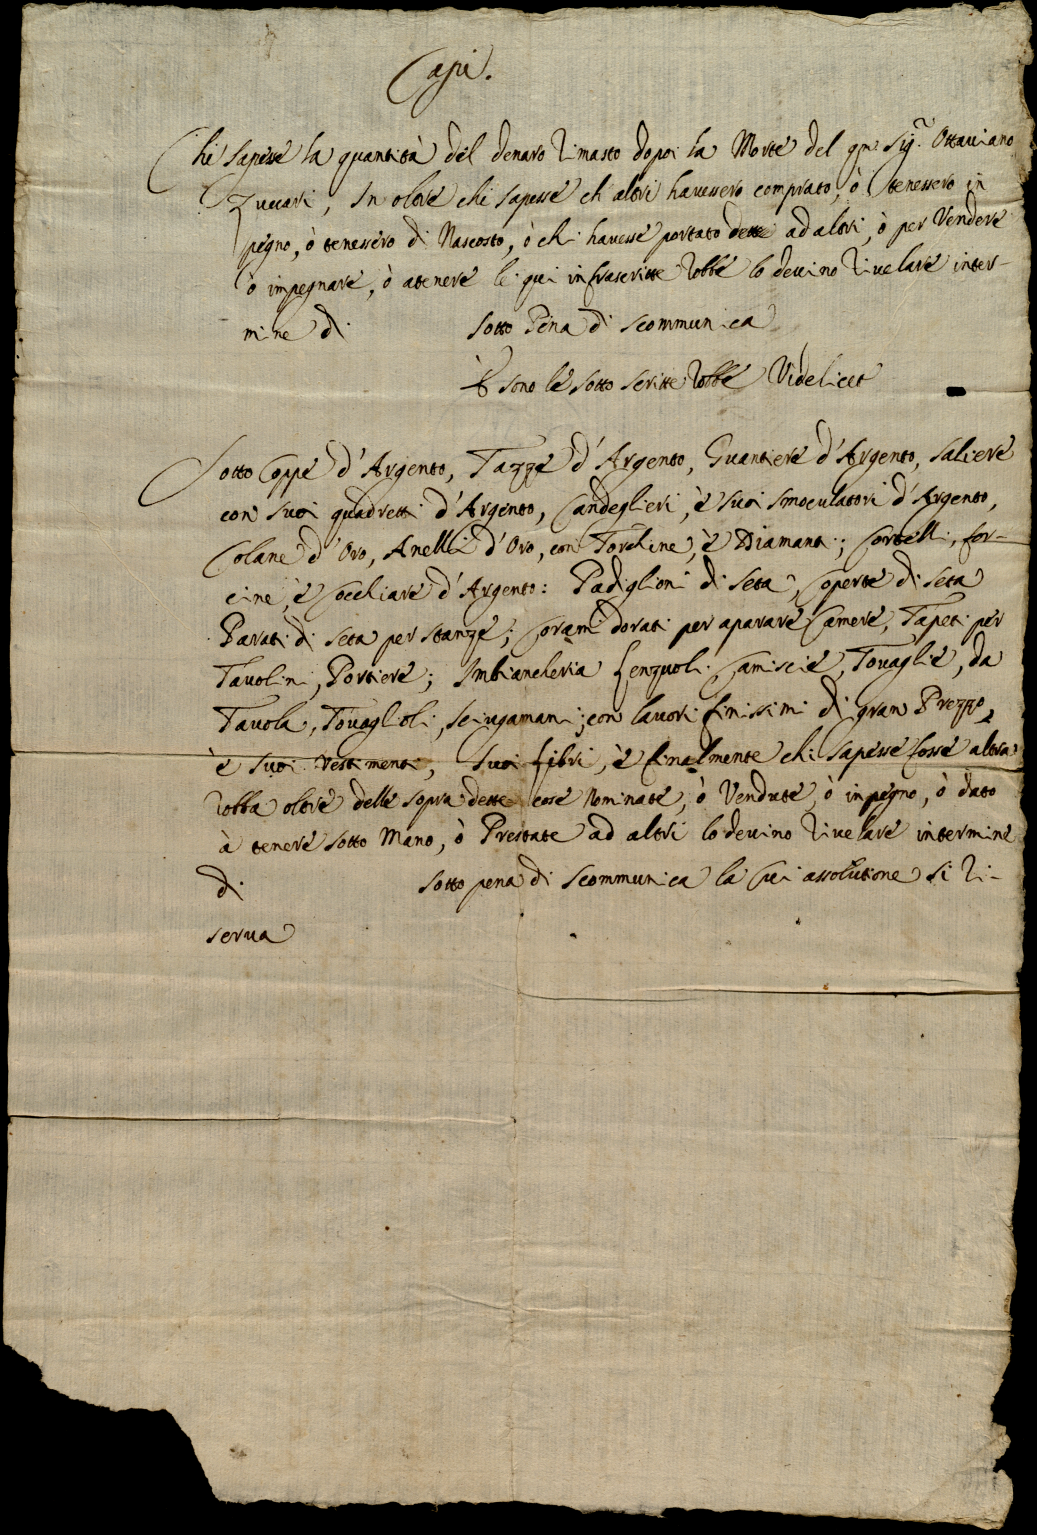 Capi.
Chi sapesse la quantità del denaro rimasto dopoi la Morte del qm̃ Sig.r Ottaviano
Zuccari, In oltre chi sapesse ch'altri havessero comprato, ò tenessero in
pegno, ò tenessero di Nascosto, ò chi havesse portato dette ad altri, ò per Vendere
ò impegnare, ò atenere le qui infrascritte robbe lo devino rivelare inter-
mine di sotto Pena di scommunica
E sono le sotto scritte robbe Videlicet
Sotto Coppe d'Argento, Tazze d'Argento, Guantiere d'Argento, Saliere
con suoi quadretti d'Argento, Candeglieri, è suoi smoculatori d'Argento,
Colane d'Oro, Anelli d'Oro, con Torchine, è Diamanti; Cortelli, for-
cine, è Cocchiare d'Argento: Padiglioni di seta, Coperte di seta
Parati di seta per stanze; Corami dorati per aparare Camere, Tapeti per
Tavolini, Portiere; Imbiancheria Lenzuoli, Camiscie, Tovaglie, da
Tavola, Tovaglioli, sciugamani; con lavori finissimi di gran Prezzo,
è suoi Vestimenti, suoi Libri, è finalmente chi sapesse fosse altra
robba oltre delle sopra dette cose Nominate, ò Vendute, ò in pegno, ò dato
à tenere sotto Mano, ò Prestate ad altri lo devino rivelare intermine
di sotto pena di scommunica la Cui assolutione si ri-
serva